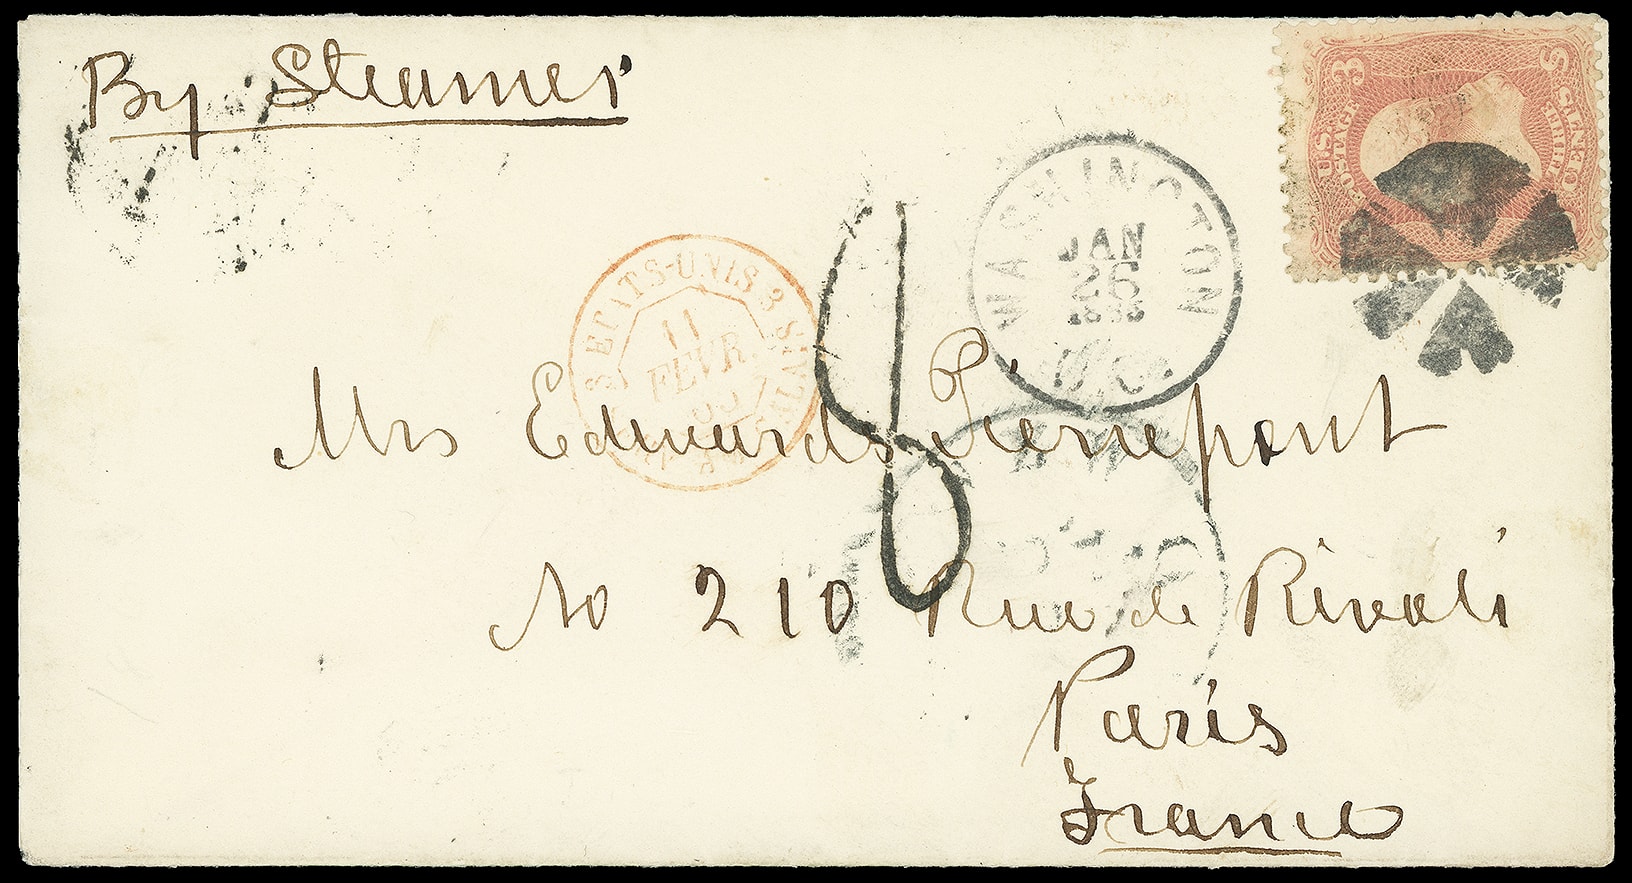 By Steamer
U.S. POSTAGE
3 S
THREE CENTS
WASHINGTON
JAN
26
D.C.
ETATS-UNIS
11
FEVR.
8
Mrs Edwards Pierrepont
No 210 Rue de Rivoli
Paris
France